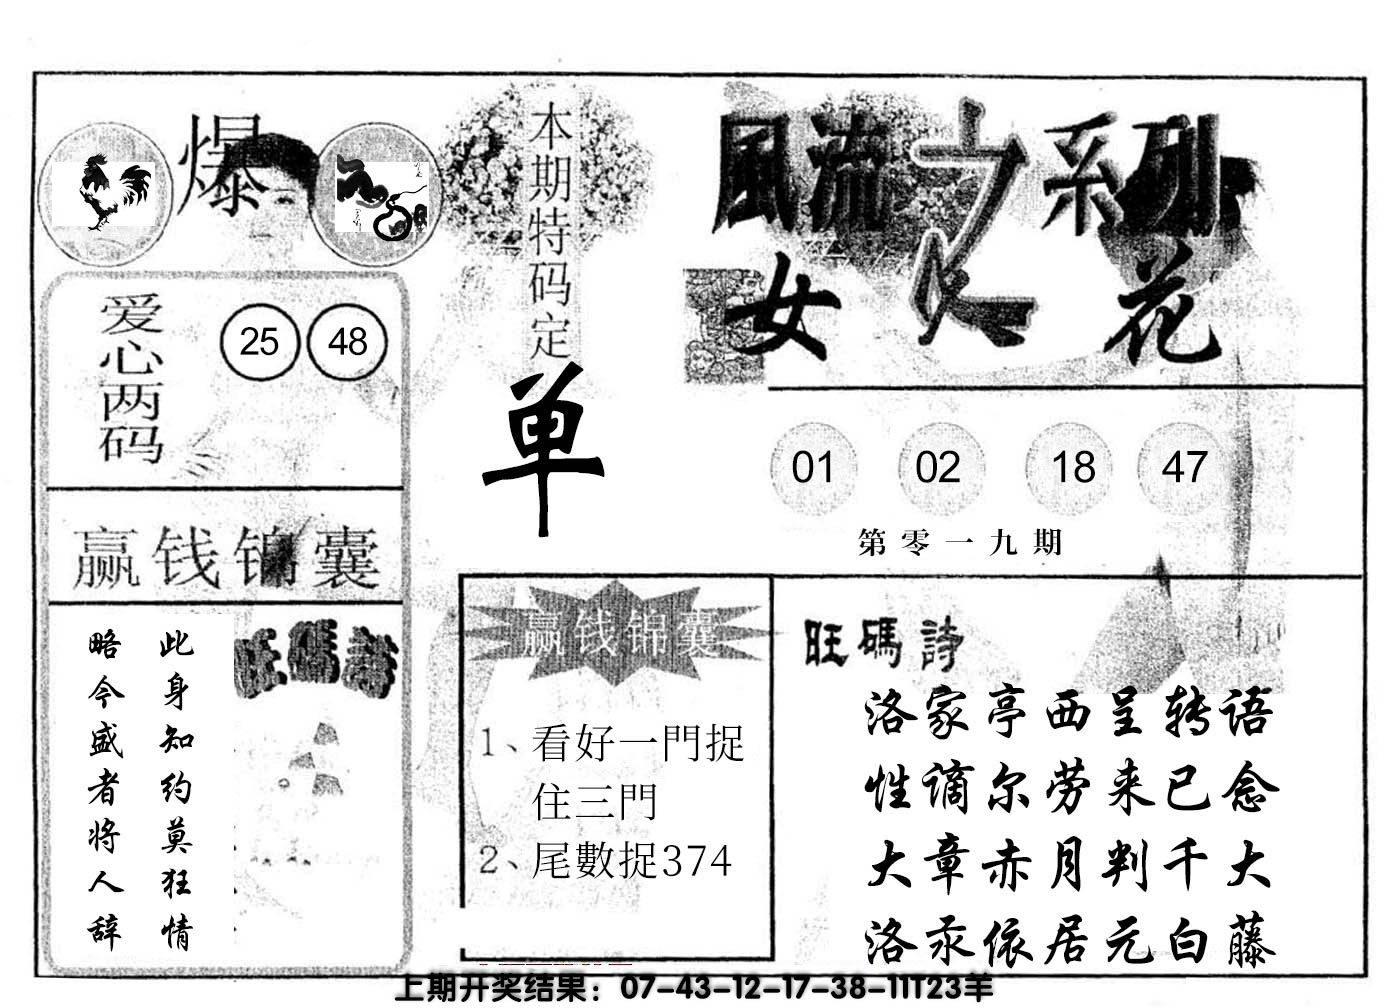 爆
本期特码定
单
風流之系列
女人花
爱心两码
25 48
赢钱锦囊
此身知约莫狂情
略今盛者将人辞
旺碼詩
01 02 18 47
第零一九期
赢钱锦囊
1、看好一門捉
住三門
2、尾數捉374
旺碼詩
洛家亭西呈转语
性谪尔劳来已念
大章赤月判千大
洛汞依居元白藤
上期开奖结果：07-43-12-17-38-11T23羊